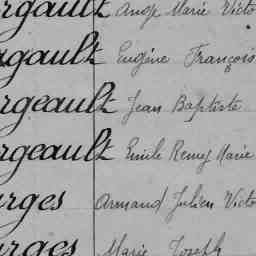 rgault Ange Marie Victo
rgault Eugène François
rgeault Jean Baptiste
rgeault Emile Remy Marie
rges Armand Julien Victo
rges Marie Joseph